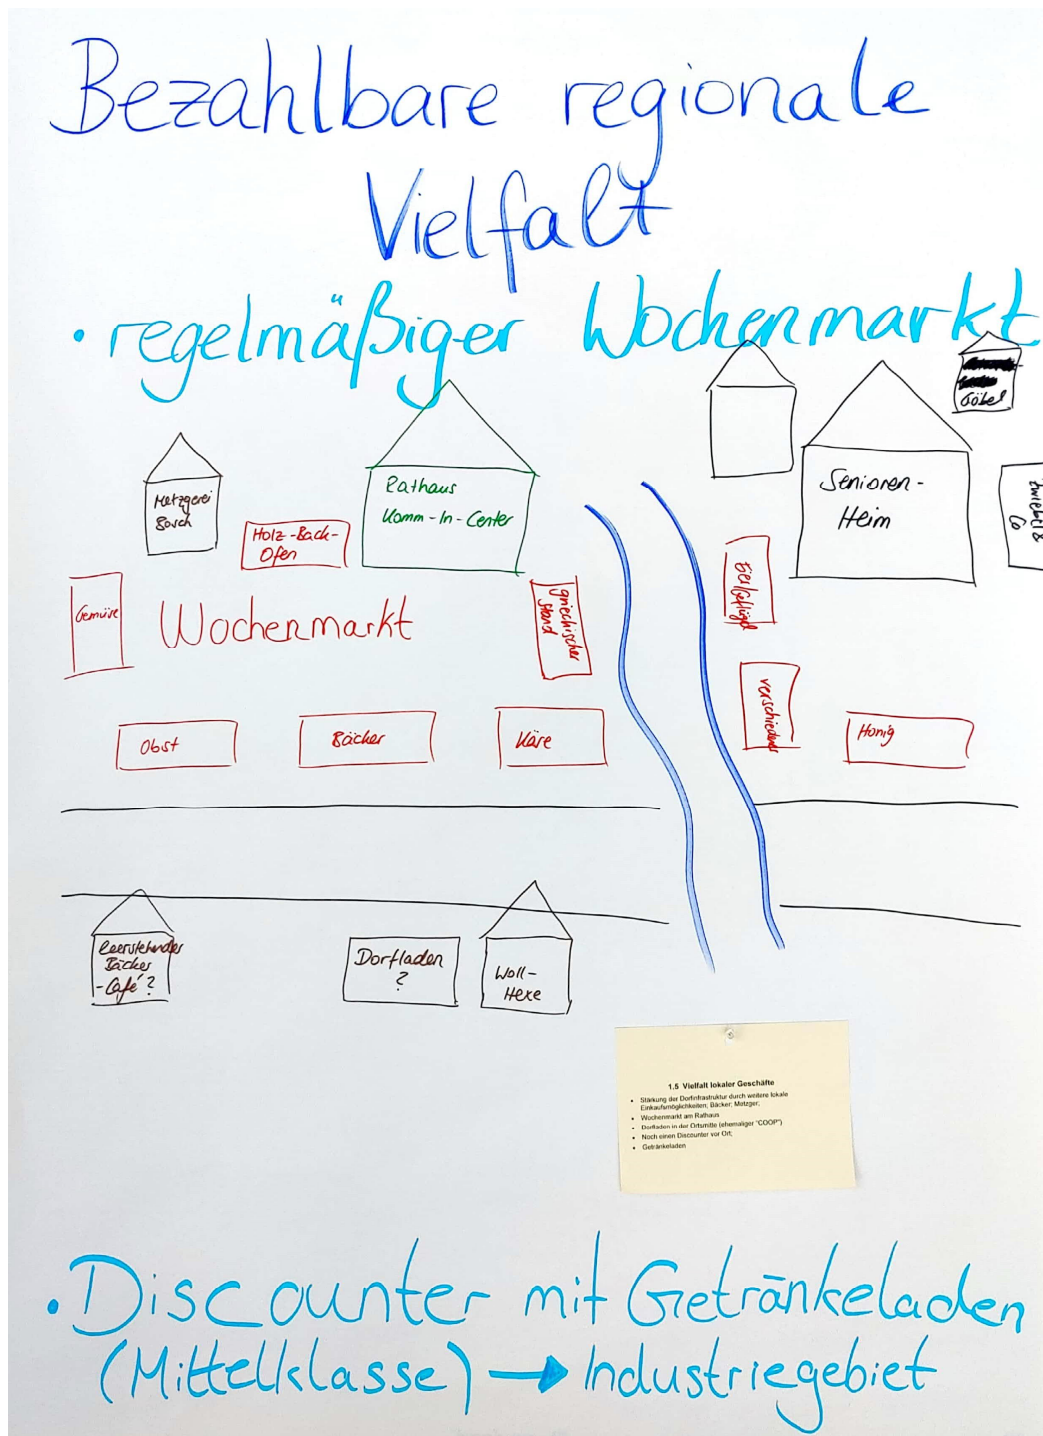 Bezahlbare regionale
Vielfalt
• regelmäßiger Wochenmarkt
Göbel
Metzgerei
Bosch
Rathaus
Komm-In-Center
Senioren-
Heim
Zwiebel &
Co
Holz-Back-
Ofen
Gemüse
Wochenmarkt
griechischer
Stand
Eier/Geflügel
verschiedenes
Obst
Bäcker
Käse
Honig
leerstehender
Bäcker
-Café?
Dorfladen
?
Woll-
Hexe
1.5 Vielfalt lokaler Geschäfte
• Stärkung der Dorfinfrastruktur durch weitere lokale
Einkaufsmöglichkeiten; Bäcker; Metzger;
• Wochenmarkt am Rathaus
• Dorfladen in der Ortsmitte (ehemaliger "COOP")
• Noch einen Discounter vor Ort;
• Getränkeladen
• Discounter mit Getränkeladen
(Mittelklasse) → Industriegebiet